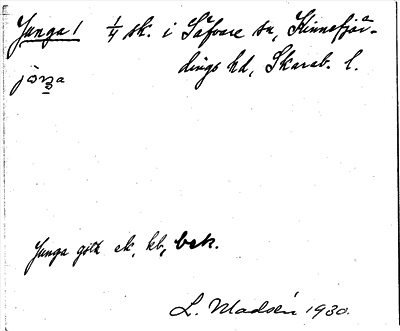 Junga 1 1/4 sk. i Säfvare sn, Kinnefjär-
dings hd, Skarab. l.
jåŋa
Junga göth ek, kb, bek.
L. Madsén 1930.